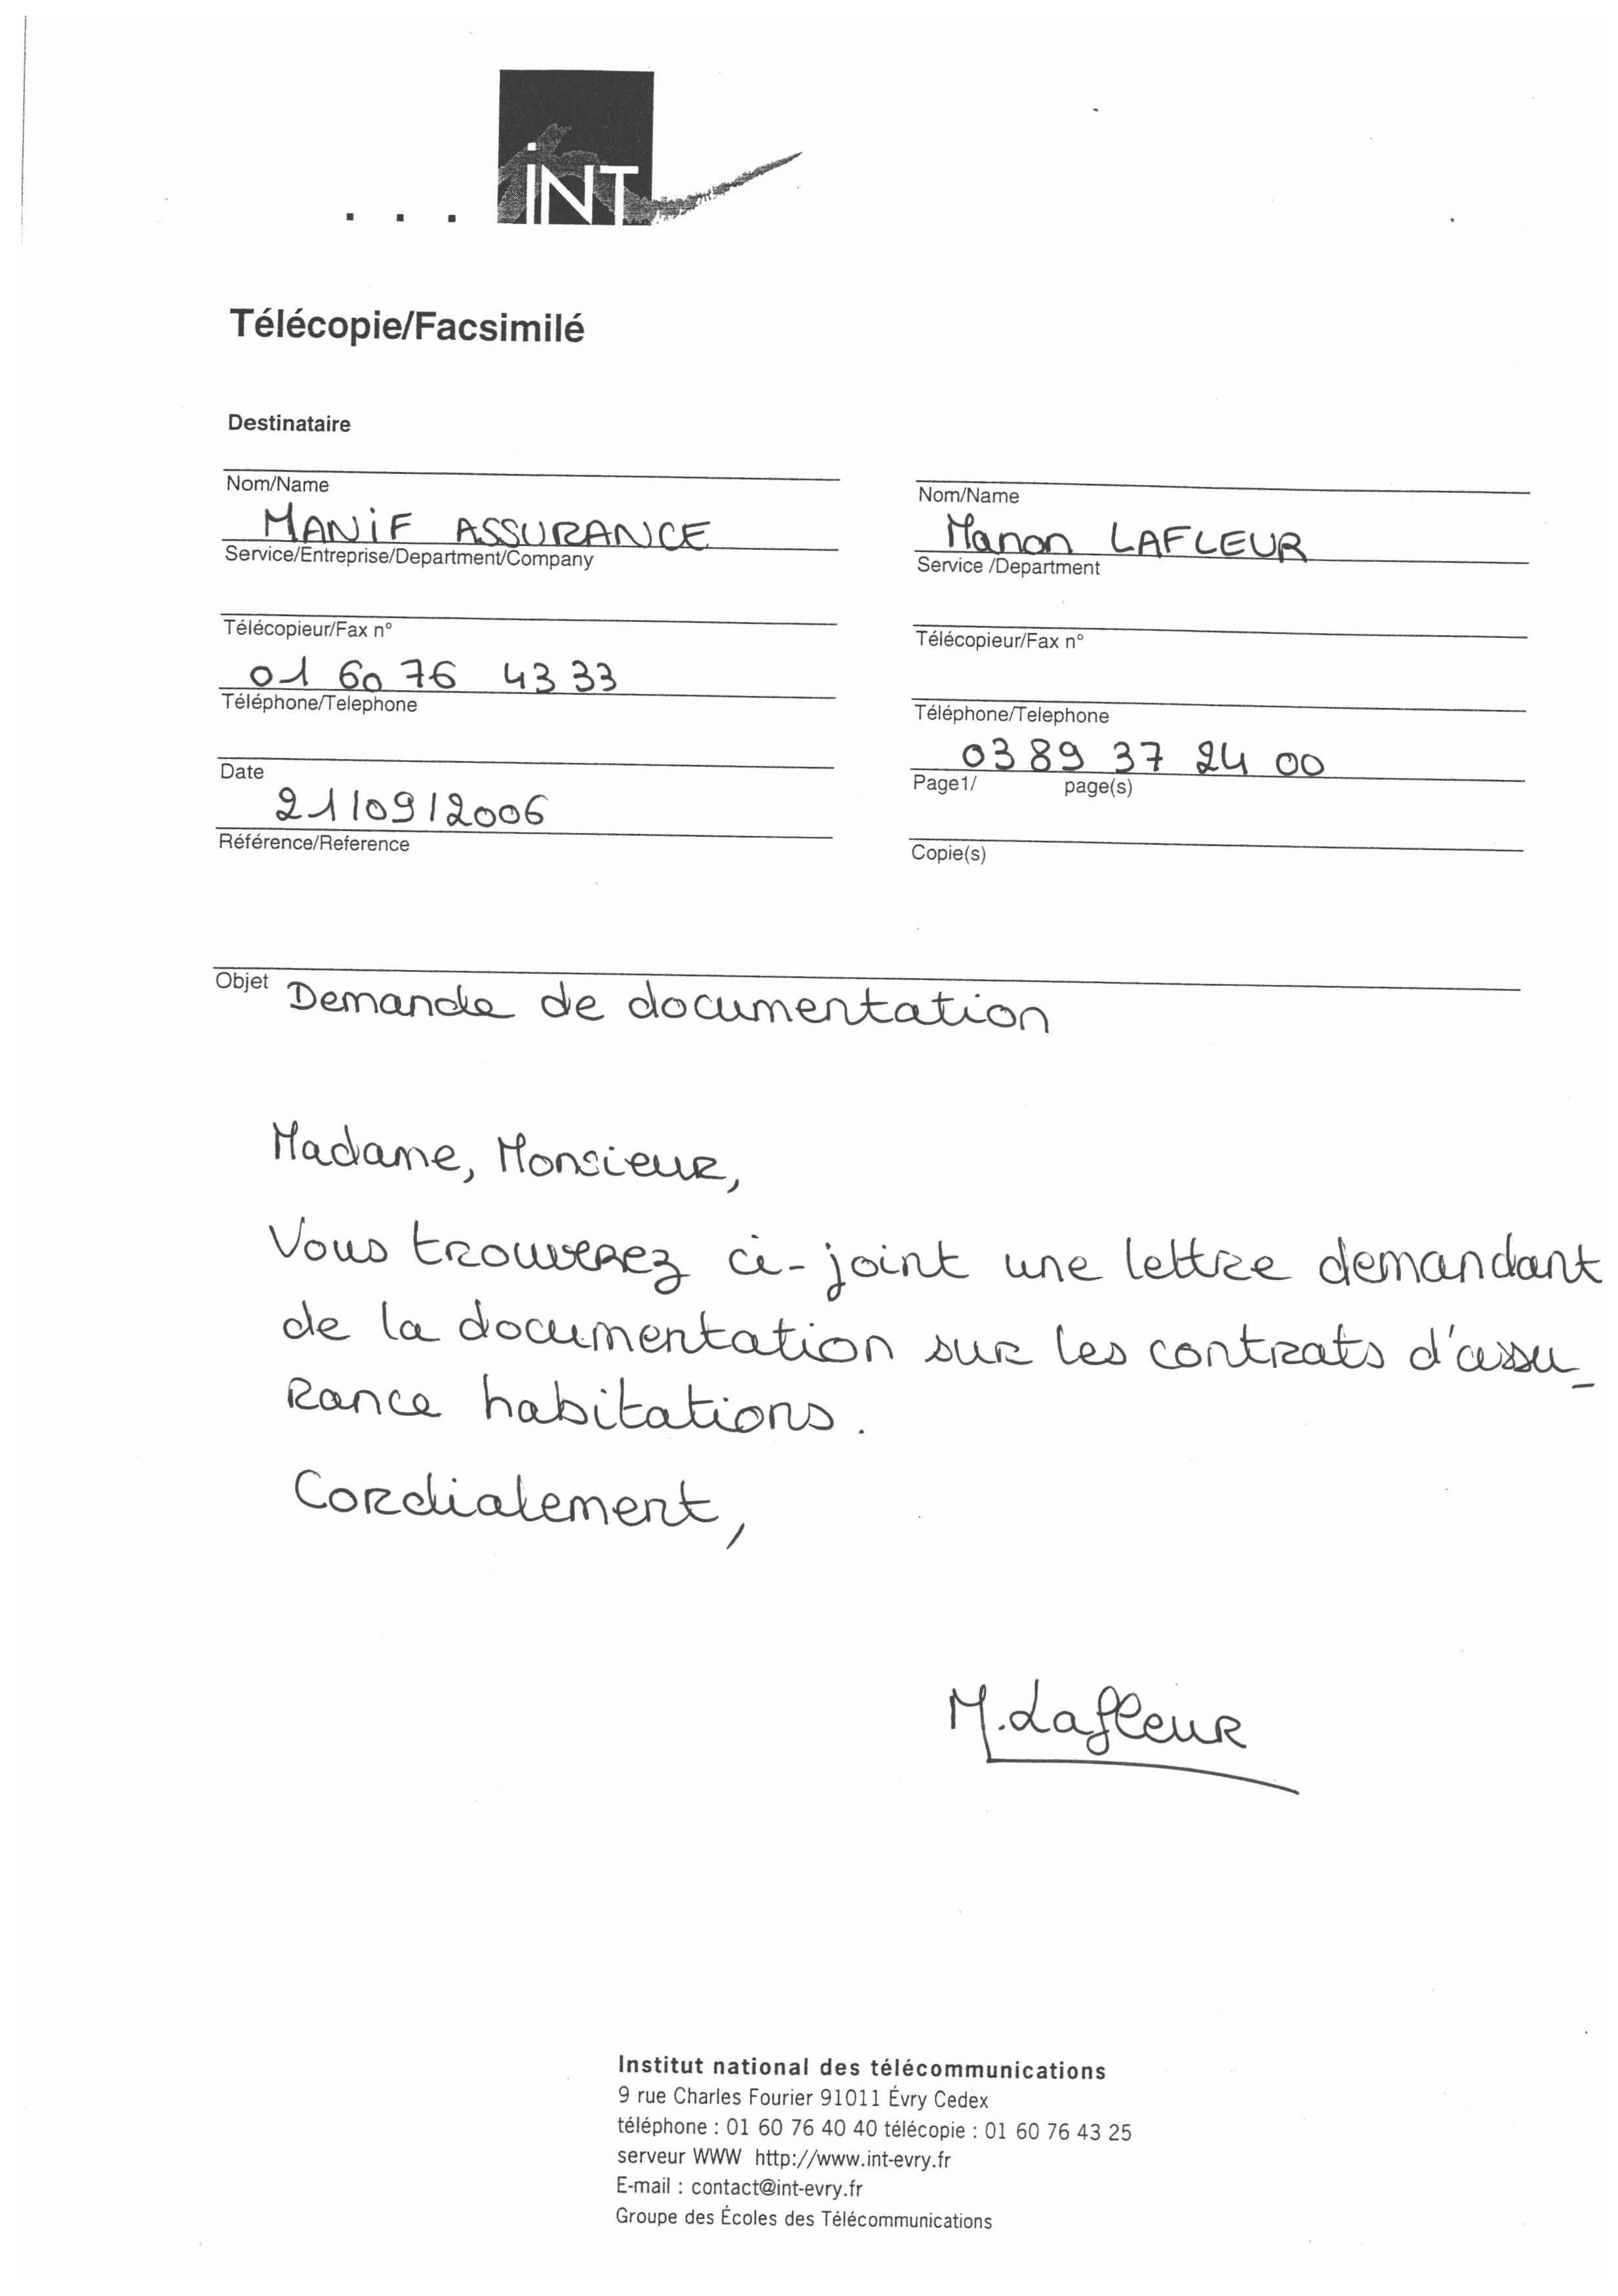 iNT
Télécopie/Facsimilé
Destinataire
Nom/Name
MANiF ASSURANCE
Service/Entreprise/Department/Company
Télécopieur/Fax n°
01 60 76 43 33
Téléphone/Telephone
Date
21/09/2006
Référence/Reference
Nom/Name
Manon LAFLEUR
Service /Department
Télécopieur/Fax n°
Téléphone/Telephone
03 89 37 24 00
Page1/ page(s)
Copie(s)
Objet Demande de documentation
Madame, Monsieur,
Vous trouverez ci-joint une lettre demandant
de la documentation sur les contrats d'assu-
rance habitations.
Cordialement,
M.Lafleur
Institut national des télécommunications
9 rue Charles Fourier 91011 Évry Cedex
téléphone : 01 60 76 40 40 télécopie : 01 60 76 43 25
serveur WWW http://www.int-evry.fr
E-mail : contact@int-evry.fr
Groupe des Écoles des Télécommunications